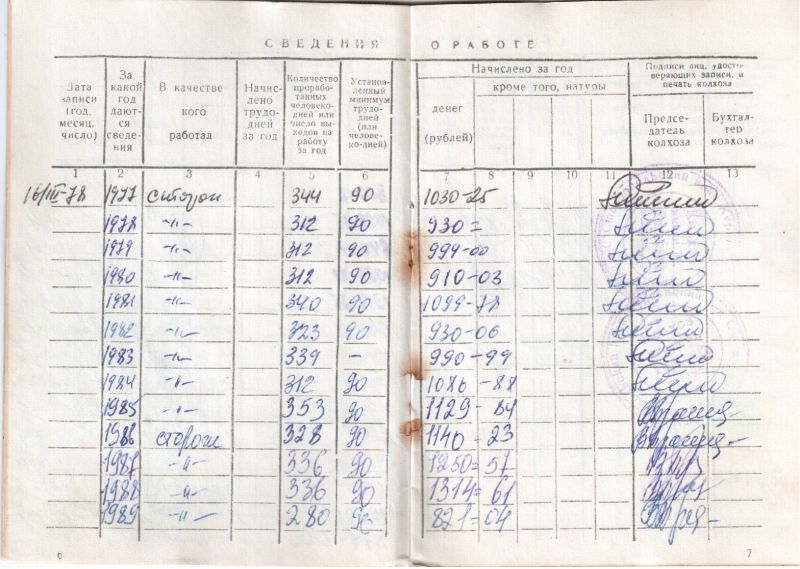 СВЕДЕНИЯ О РАБОТЕ
Дата записи (год, месяц, число)
За какой год даются сведения
В качестве кого работал
Начислено трудодней за год
Количество проработанных человеко-дней или число выходов на работу за год
Установленный минимум трудодней (или человеко-дней)
Начислено за год
денег (рублей)
кроме того, натуры
Подписи лиц, удостоверяющих записи, и печать колхоза
Председатель колхоза
Бухгалтер колхоза
1 2 3 4 5 6 7 8 9 10 11 12 13
16/III-78 1977 сторож 344 90 1030-25
1978 -"- 312 90 930=
1979 -"- 312 90 994-00
1980 -"- 312 90 910-03
1981 -"- 340 90 1099-78
1982 -"- 323 90 930-06
1983 -"- 339 - 990-99
1984 -"- 312 90 1086-88
1985 -"- 353 90 1129-84
1986 сторож 328 90 1140-23
1987 -"- 336 90 1250=57
1988 -"- 336 90 1314=61
1989 -"- 280 90 821=04
6
7